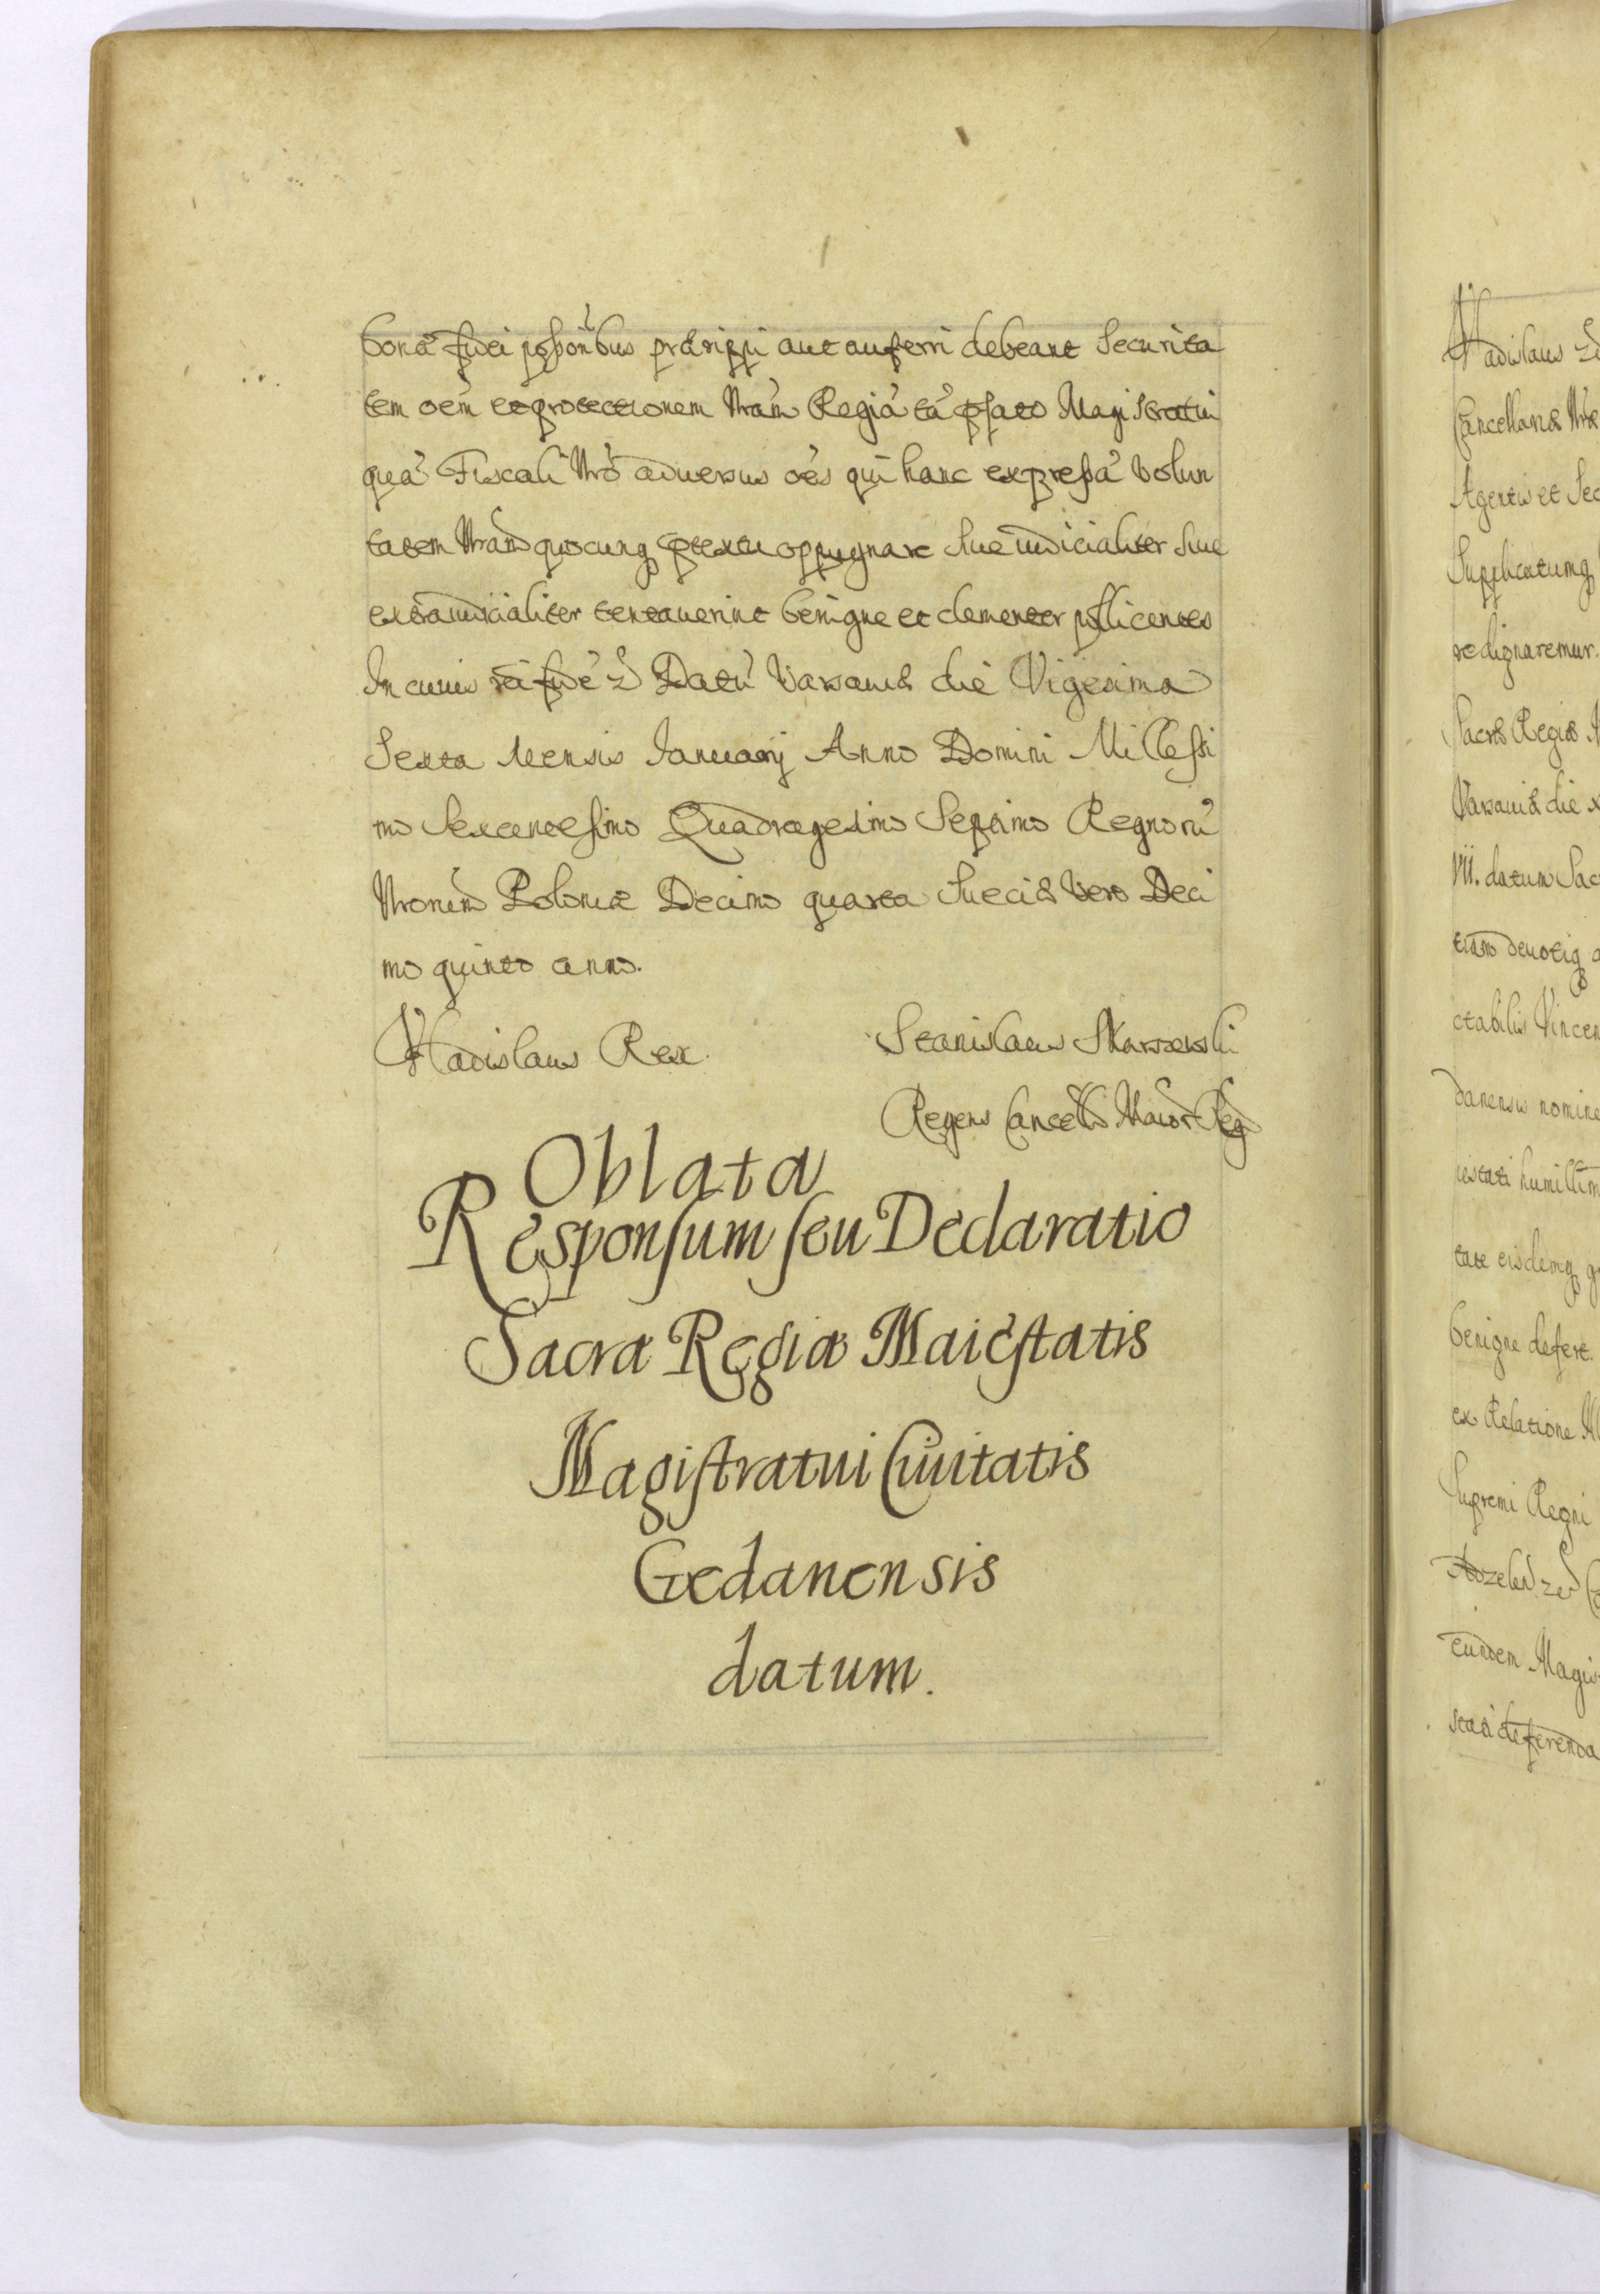 bonæ fidei possoribus præripi aut auferri debeant Securita
tem oem et protectionem Nram Regia ta psato Magistratui
qua Fiscali Nro aduersus oes qui hanc expressa Volun
tatem Nram quocunq ptextu oppugnare Siue iudicialiter Siue
extraiudicialiter tentauerint benigne et clementer pollicentes
In cuius rei fide Datu Varsauiæ die Vigesima
Sexta Mensis Januarij Anno Domini Millessi
mo Sexcentesimo Quadragesimo Septimo Regnoru
Nrorum Poloniæ Decimo quarto Sueciæ Vero Deci
mo quinto anno.
Vladislaus Rex.
Stanislaus Skarszewski
Regens Cancell Maior Reg
Oblata
Responsum seu Declaratio
Sacræ Regiæ Maiestatis
Magistratui Ciuitatis
Gedanensis
datum.
Vladislaus
Cancellariæ Nræ
Agentis et Sec
Supplicatumq
re dignaremur.
Sacræ Regiæ
Varsauiæ die
VII. datum Sac
deuotiq
ctabilis Vincen
danensis nomine
iestati humillim
tate eisdemq
benigne defert.
ex Relatione
Supremi Regni
eundem Magis
deferenda